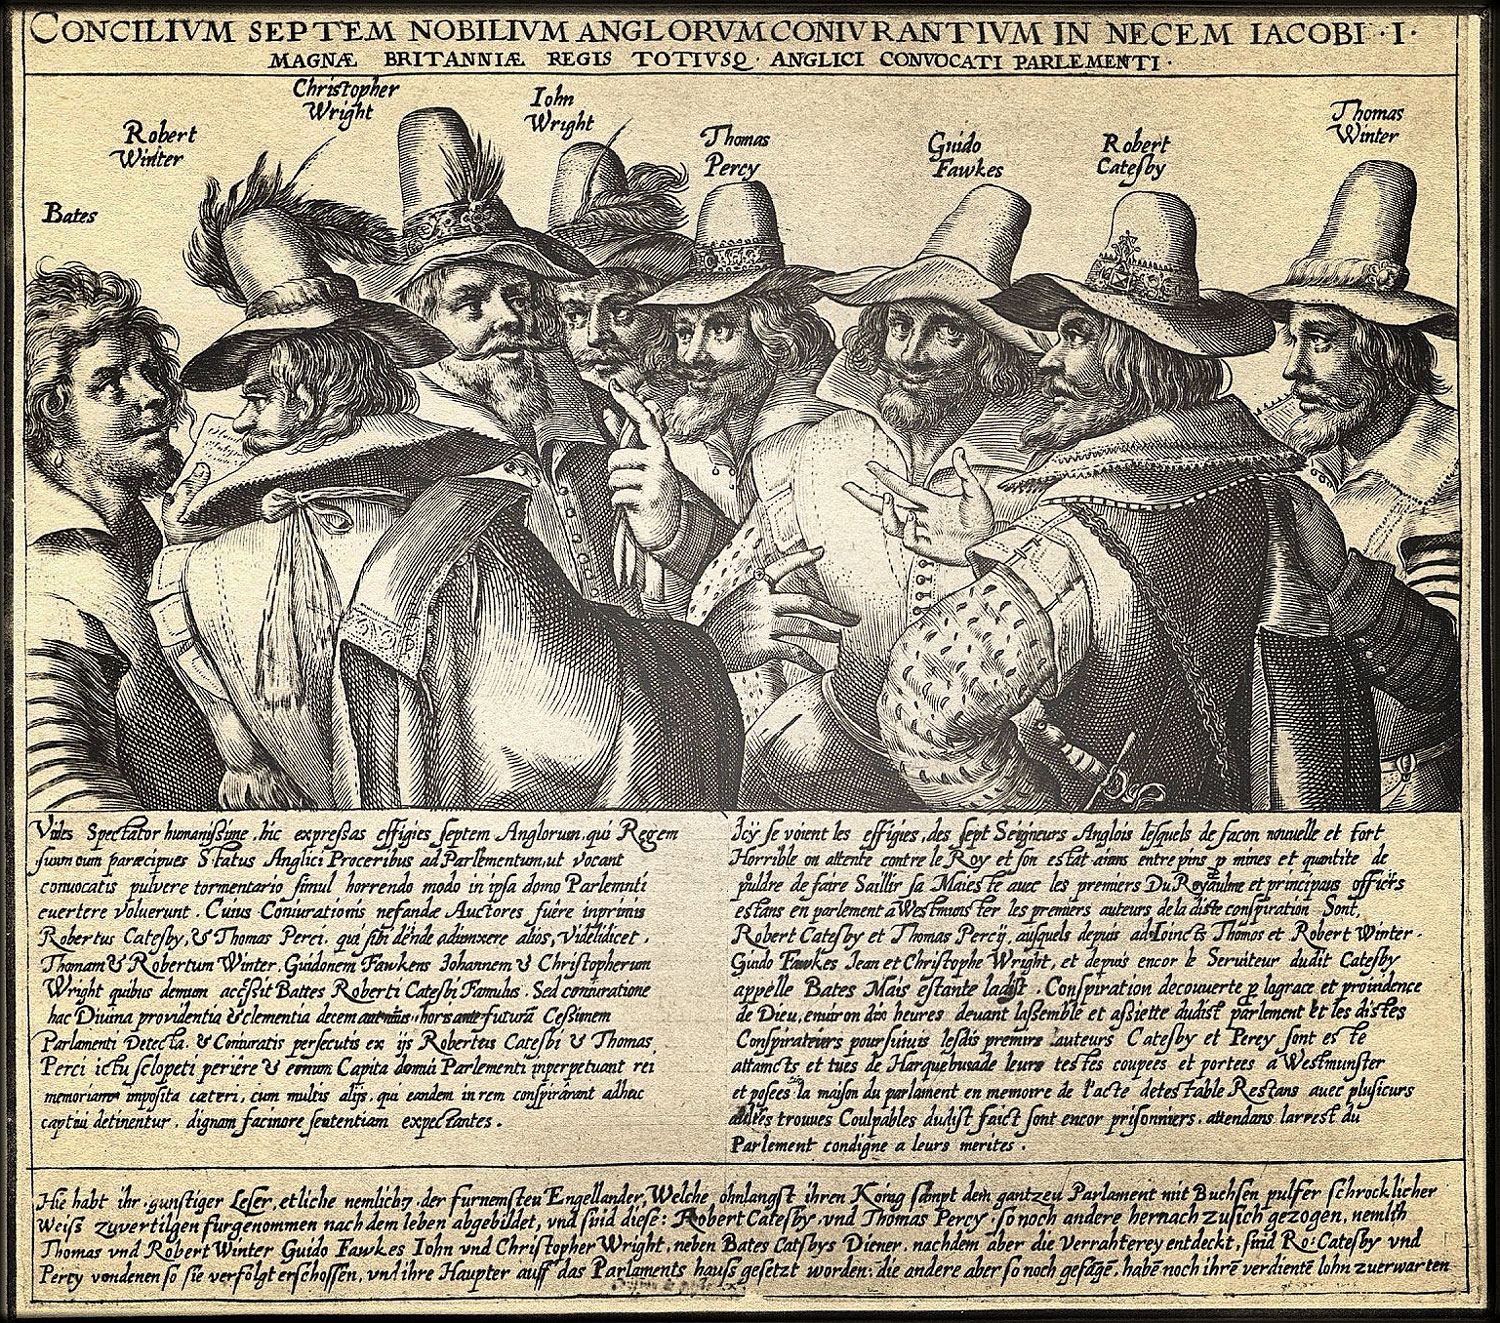 CONCILIVM SEPTEM NOBILIVM ANGLORVM CONIVRANTIVM IN NECEM IACOBI · I ·
MAGNÆ BRITANNIÆ REGIS TOTIVSQ · ANGLICI CONVOCATI PARLEMENTI ·
Bates
Robert
Winter
Christopher
Wright
Iohn
Wright
Thomas
Percy
Guido
Fawkes
Robert
Catesby
Thomas
Winter
Vides Spectator humanißime, hic expreßas effigies septem Anglorum, qui Regem
suum cum paræcipues Status Anglici Proceribus ad Parlementum, ut vocant
convocatis pulvere tormentario simul horrendo modo in ipsa domo Parlemnti
euertere voluerunt. Cuius Coniurationis nefandæ Auctores fuêre inprimis
Robertus Catesby, & Thomas Perci. qui sibi deinde adiunxere alios, Videlidicet.
Thomam & Robertum Winter. Guidonem Fawkens Iohannem & Christopherum
Wright quibus demum accessit Battes Roberti Catesbi Famulus. Sed coniuratione
hac Divina providentia & clementia decem horis futurâ Ceßionem
Parlamenti Detecta. & Coniuratis persecutis ex ijs Robertus Catesbi & Thomas
Perci ictu sclopeti periêre & eorum Capita domui Parlementi inperpetuam rei
memoriam imposita cæteri, cum multis alijs. qui eandem in rem conspirârant adhuc
captiui detinentur. dignam facinore sententiam expectantes.
Icÿ se voient les effigies, des sept Seigneurs Anglois lesquels de facon nouuelle et fort
Horrible on attente contre le Roy et son estat aians entre pins p mines et quantite de
puldre de faire Saillir sa Maieste auec les premiers Du Royaulme et principaus officiers
estans en parlement a Westmunster les premiers auteurs de la diste conspiration Sont,
Robert Catesby et Thomas Percij, ausquels depuis ad-Ioincts Thomas et Robert Winter.
Guido Fawkes Jean et Christophe Wright, et depuis encor le Seruiteur dudit Catesby
appelle Bates Mais estante ladist. Conspiration decouuerte p la grace et prouidence
de Dieu, enuiron dix heures deuant lassemble et assiette dudist parlement et les distes
Conspirateurs poursuiuis lesdis premirs auteurs Catesby et Percy sont este
attaincts et tues de Harquebusade leurs testes coupees et portees a Westmunster
et posées la maison du parlament en memorre de l'acte detestable Restans auec plusieurs
aultres trouues Coulpables dudist faict sont encor prisonniers. attendans larrest du
Parlement condigne a leurs merites.
Hie habt ihr gunstiger Leser, etliche nemlich 7. der furnemsten Engellander, Welche ohnlangst ihren König sampt dem gantzen Parlament mit Buchsen pulfer schrocklicher
Weiß zuvertilgen furgenommen nach dem leben abgebildet, vnd sind diese: Robert Catesby. vnd Thomas Percy. so noch andere hernach zu sich gezogen, nemlich
Thomas vnd Robert Winter Guido Fawkes Iohn vnd Christopher Wright, neben Bates Catsbys Diener. nachdem aber die Verrahterey entdeckt, sind Ro: Catesby vnd
Percy von denen so sie verfolgt erschossen, vnd ihre Haupter auff das Parlaments hauß gesetzt worden: die andere aber so noch gefägē, habē noch ihrē verdientē lohn zuerwarten